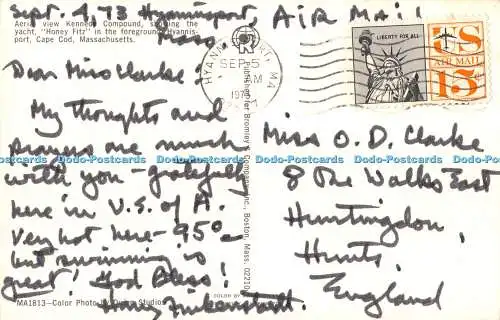 Sept. 4, 73 Hyannisport, Mass.
AIR MAIL
Aerial view Kennedy Compound, showing the
yacht, "Honey Fitz" is the foreground, Hyannis-
port, Cape Cod, Massachusetts.
Dear Miss Clarke:
My thoughts and
prayers are much
with you - gratefully
here in U.S. of A.
Very hot here - 95°
but swimming is
great! God Bless!
MA1813-Color Photo by Studios
Published for Bromley & Company, Inc., Boston, Mass. 02210
COLOR BY
HYANNIS PORT, MA
SEP 5
AM
LIBERTY FOR ALL
US
AIR MAIL
15¢
Miss O. D. Clarke
8 The Walks East
Huntingdon,
Hunts,
England
Dodo-Postcards Dodo-Postcards Dodo-Postcards Dodo-Postcards